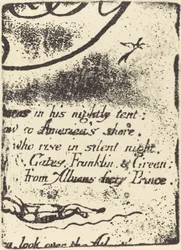 in his nightly tent:
ow to America's shore:
who rise in silent night,
Gates, Franklin, & Green;
from Albions fiery Prince
look over the